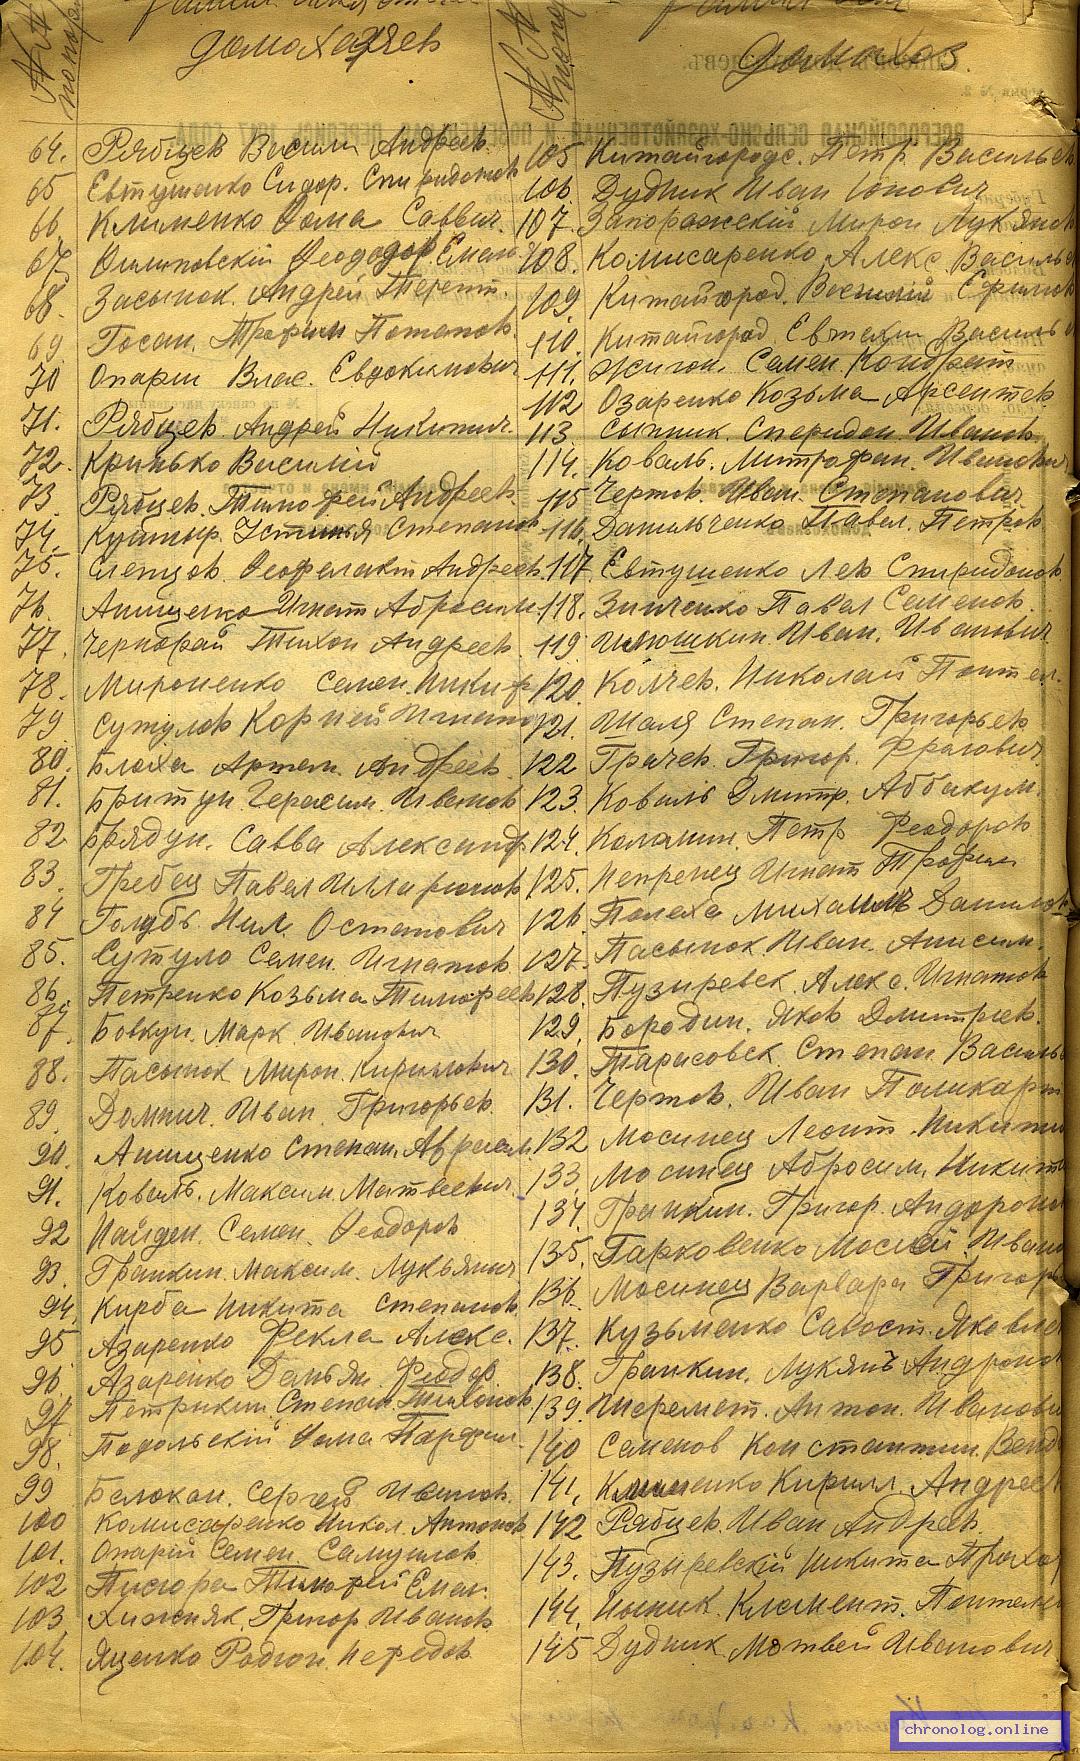 домохозяев
домохоз.
64. Рябцев Васили Андреев.
65 Евтушенко Сидор. Спиридонов
66 Клименко Фома Саввич.
67 Филиповскій Феододор Емель
68. Засыпок. Андрей Терент.
69 Госан. Трофим Потапов.
70 Опаріи Влас. Евдокимович
71. Рябцев Андрей Никитич.
72. Кринько Василій
73. Рябцев. Тимофей Андреев.
74. Устинья Степанов
75. Слепцов. Феофелакт Андреев.
76. Анищенко Игнат Абросим
77. Чернорай Тихон Андреев.
78. Мироненко Семен. Никиф
79 Сутулов Корней Игнато
80. Блоха Артем. Андреев.
81. Бритун. Герасим. Иванов
82 Брядун. Савва Александ
83. Гребец Павел Илларионов
84 Голубь. Нил. Остапович
85. Сутуло Семен. Игнатов
86. Петренко Козьма Тимофеев
87. Бовкун. Марк Иванович
88. Пасынок Мирон. Кирилович
89. Домнич. Иван. Григорьев.
90. Анищенко Степан. Авраам.
91. Коваль. Максим. Матвеевич.
92 Найден. Семен. Феодоров
93. Грапкин. Максим. Лукьянич
94. Кирба Никита Степанов
95 Азаренко Фекла Алекс.
96. Азаренко Демьян. Феодор.
97 Петрыкин Степан. Тихонов
98. Подольскій Фома Парфил
99 Белокон. Сергей Иванов.
100 Комисаренко Никол. Антонов
101. Опарій Семен Самуилов
102 Писюра Тимофей Емел.
103 Хижняк. Григор Иванов
104. Яценко Родион. Нефедов
105 Китайгородс. Петр Васильев
106. Дудник Иван Іонович
107. Запоражскій Мирон Лукянов
108. Комисаренко Алекс Василье
109. Китайгород. Василій Ефимов
110. Китайгород. Евтихи Василь
111. Жигон. Семен. Кондрат
112 Озаренко Козьма Арсентев
113 Сыпник. Спередон Иванов
114. Коваль. Митрофан. Иванович
115 Чертов. Иван. Степанович
116. Данильченко Павел. Петров
117 Евтушенко Лев Спиридонов
118. Зинченко Павел Семенов.
119 Илюшкин. Иван. Иванович
120. Колчев. Николай Пантел.
121. Шаля Степан. Григорьев
122 Грачев. Григор. Фролович.
123. Коваль Дмитр. Аббакум.
124. Коламин. Петр Феодоров
125. Непренец Игнат Трофим
126. Полеха Михаилъ Данилов
127. Пасынок. Иван. Анисим.
128. Пузыревск. Алекс. Игнатов
129. Бородин. Яков Дмитриев.
130. Тарасовск Степан. Василь
131. Чертов. Иван Поликарп
132 Мосинец Леонт. Никити
133. Мосинец Абросим. Никит
134. Грапкин. Григор. Андрони
135. Гарковенко Мосей. Ивано
136. Мосинец Варвара Григорь
137. Кузьменко Савост. Яковле
138. Грапкин. Лукянъ Андроно
139. Шеремет. Антон. Иванови
140 Семенов Константин. Вене
141. Клименко Кирилл. Андрее
142 Рябцев. Иван Андреев.
143. Пузыревскій Никита Прохо
144. Ныник. Клемент. Пантели
145 Дудник Матвей Иванович
chronolog.online